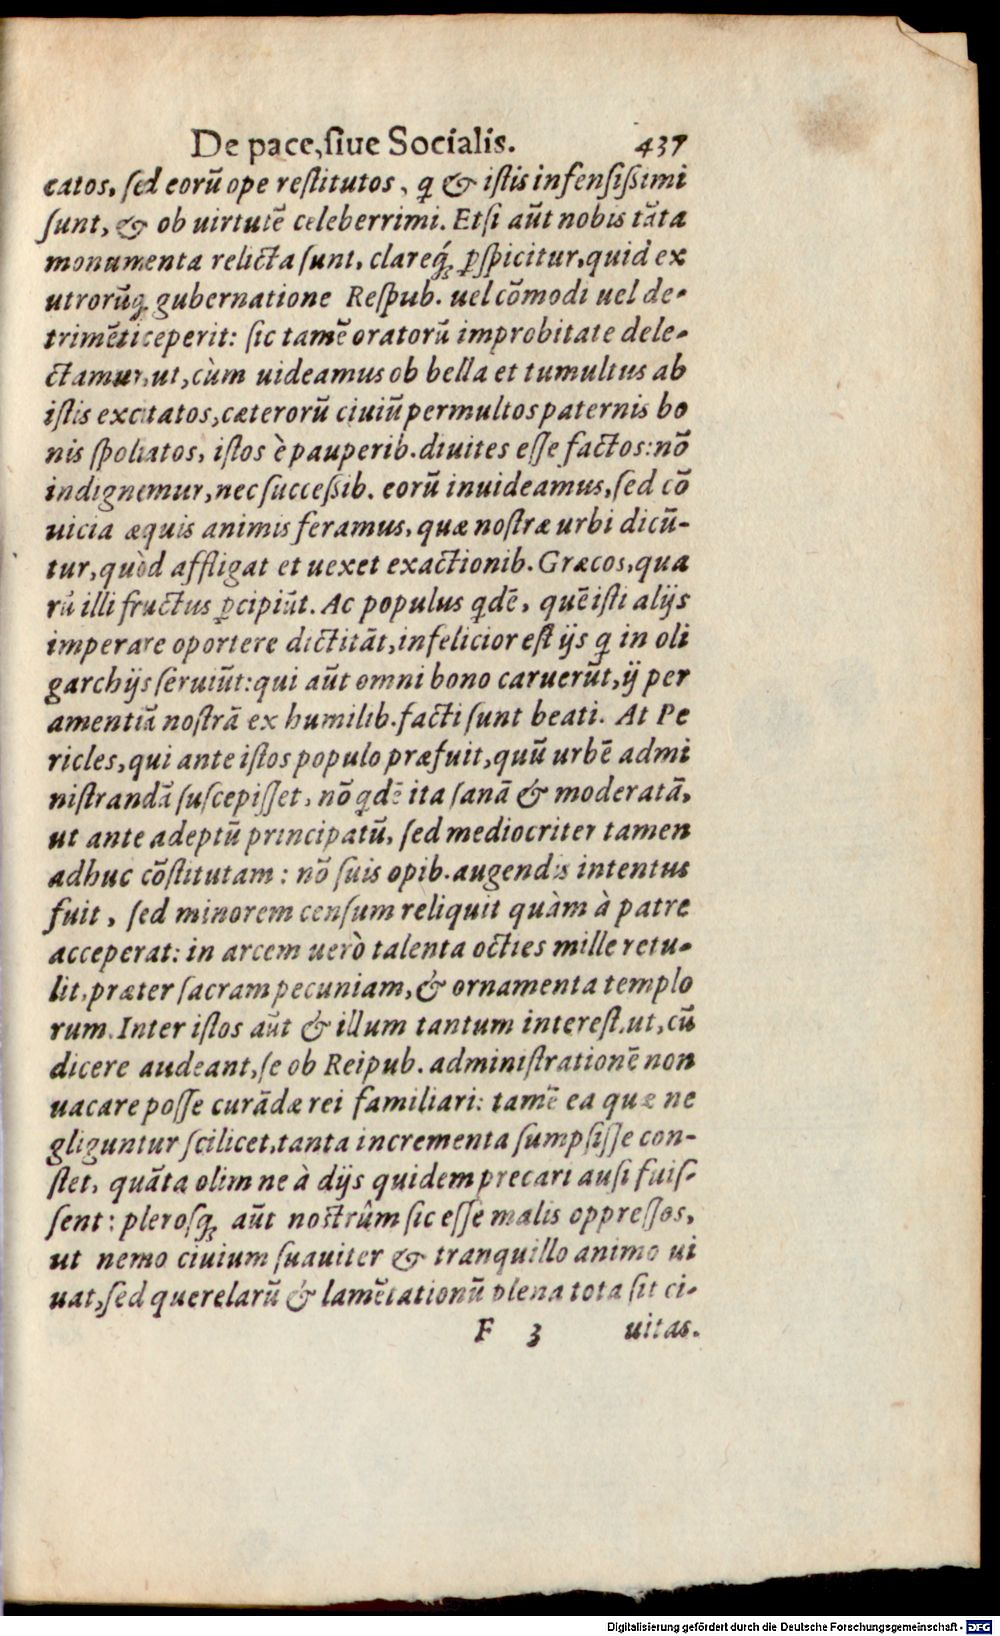 De pace, ſiue Socialis. 437
catos, ſed eorũ ope reſtitutos, ꝗ & iſtis infenſißimi
ſunt, & ob uirtutẽ celeberrimi. Etſi aũt nobis tãta
monumenta relicta ſunt, clareq́ꝫ ꝑſpicitur, quid ex
utrorũqꝫ gubernatione Reſpub. uel cõmodi uel de-
trimẽti ceperit: ſic tamẽ oratorũ improbitate dele-
ctamur, ut, cùm uideamus ob bella et tumultus ab
iſtis excitatos, cæterorũ ciuiũ permultos paternis bo
nis ſpoliatos, iſtos è pauperib. diuites eſſe factos: nõ
indignemur, nec ſucceßib. eorũ inuideamus, ſed cõ
uicia æquis animis feramus, quæ noſtræ urbi dicũ-
tur, quòd affligat et uexet exactionib. Græcos, qua
rũ illi fructus ꝑcipiũt. Ac populus ꝗdẽ, quẽ iſti alijs
imperare oportere dictitãt, infelicior eſt ijs ꝗ in oli
garchijs ſeruiũt: qui aũt omni bono caruerũt, ij per
amentiã noſtrã ex humilib. facti ſunt beati. At Pe
ricles, qui ante iſtos populo præfuit, quũ urbẽ admi
niſtrandã ſuſcepiſſet, nõ ꝗdẽ ita ſanã & moderatã,
ut ante adeptũ principatũ, ſed mediocriter tamen
adhuc cõſtitutam: nõ ſuis opib. augendis intentus
fuit, ſed minorem cenſum reliquit quàm à patre
acceperat: in arcem uerò talenta octies mille retu-
lit, præter ſacram pecuniam, & ornamenta templo
rum. Inter iſtos aũt & illum tantum intereſt, ut, cũ
dicere audeant, ſe ob Reipub. adminiſtrationẽ non
uacare poſſe curãdæ rei familiari: tamẽ ea quæ ne
gliguntur ſcilicet, tanta incrementa ſumpſiſſe con-
ſtet, quãta olim ne à dijs quidem precari auſi fuiſ-
ſent: pleroſqꝫ aũt noſtrûm ſic eſſe malis oppreſſos,
ut nemo ciuium ſuauiter & tranquillo animo ui
uat, ſed querelarũ & lamẽtationũ plena tota ſit ci-
F 3 uitas.
Digitalisierung gefördert durch die Deutsche Forschungsgemeinschaft - DFG